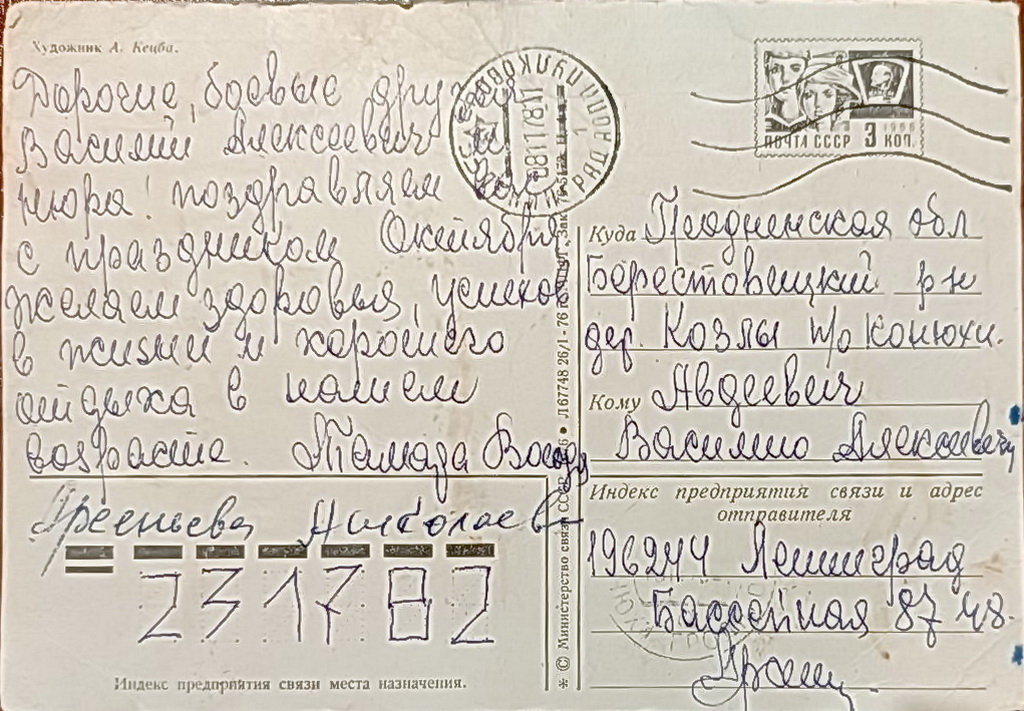 Художник А. Кецба.
Дорогие, боевые друзья
Василий Алексеевич и
Нюра! поздравляем
с праздником Октября
желаем здоровья, успехов
в жизни и хорошего
отдыха в нашем
возрасте. Тамара
Арсеньева Николаев
231782
Индекс предприятия связи места назначения.
* © Министерство связи СССР
Л 67748 26/I - 76
1966
ПОЧТА СССР 3 КОП.
Куда Гродненская обл
Берестовецкий р-н
дер. Козлы п/о Конюхи.
Кому Авдеевич
Василию Алексеевичу
Индекс предприятия связи и адрес
отправителя
196244 Ленинград
Бассейная 87 48.